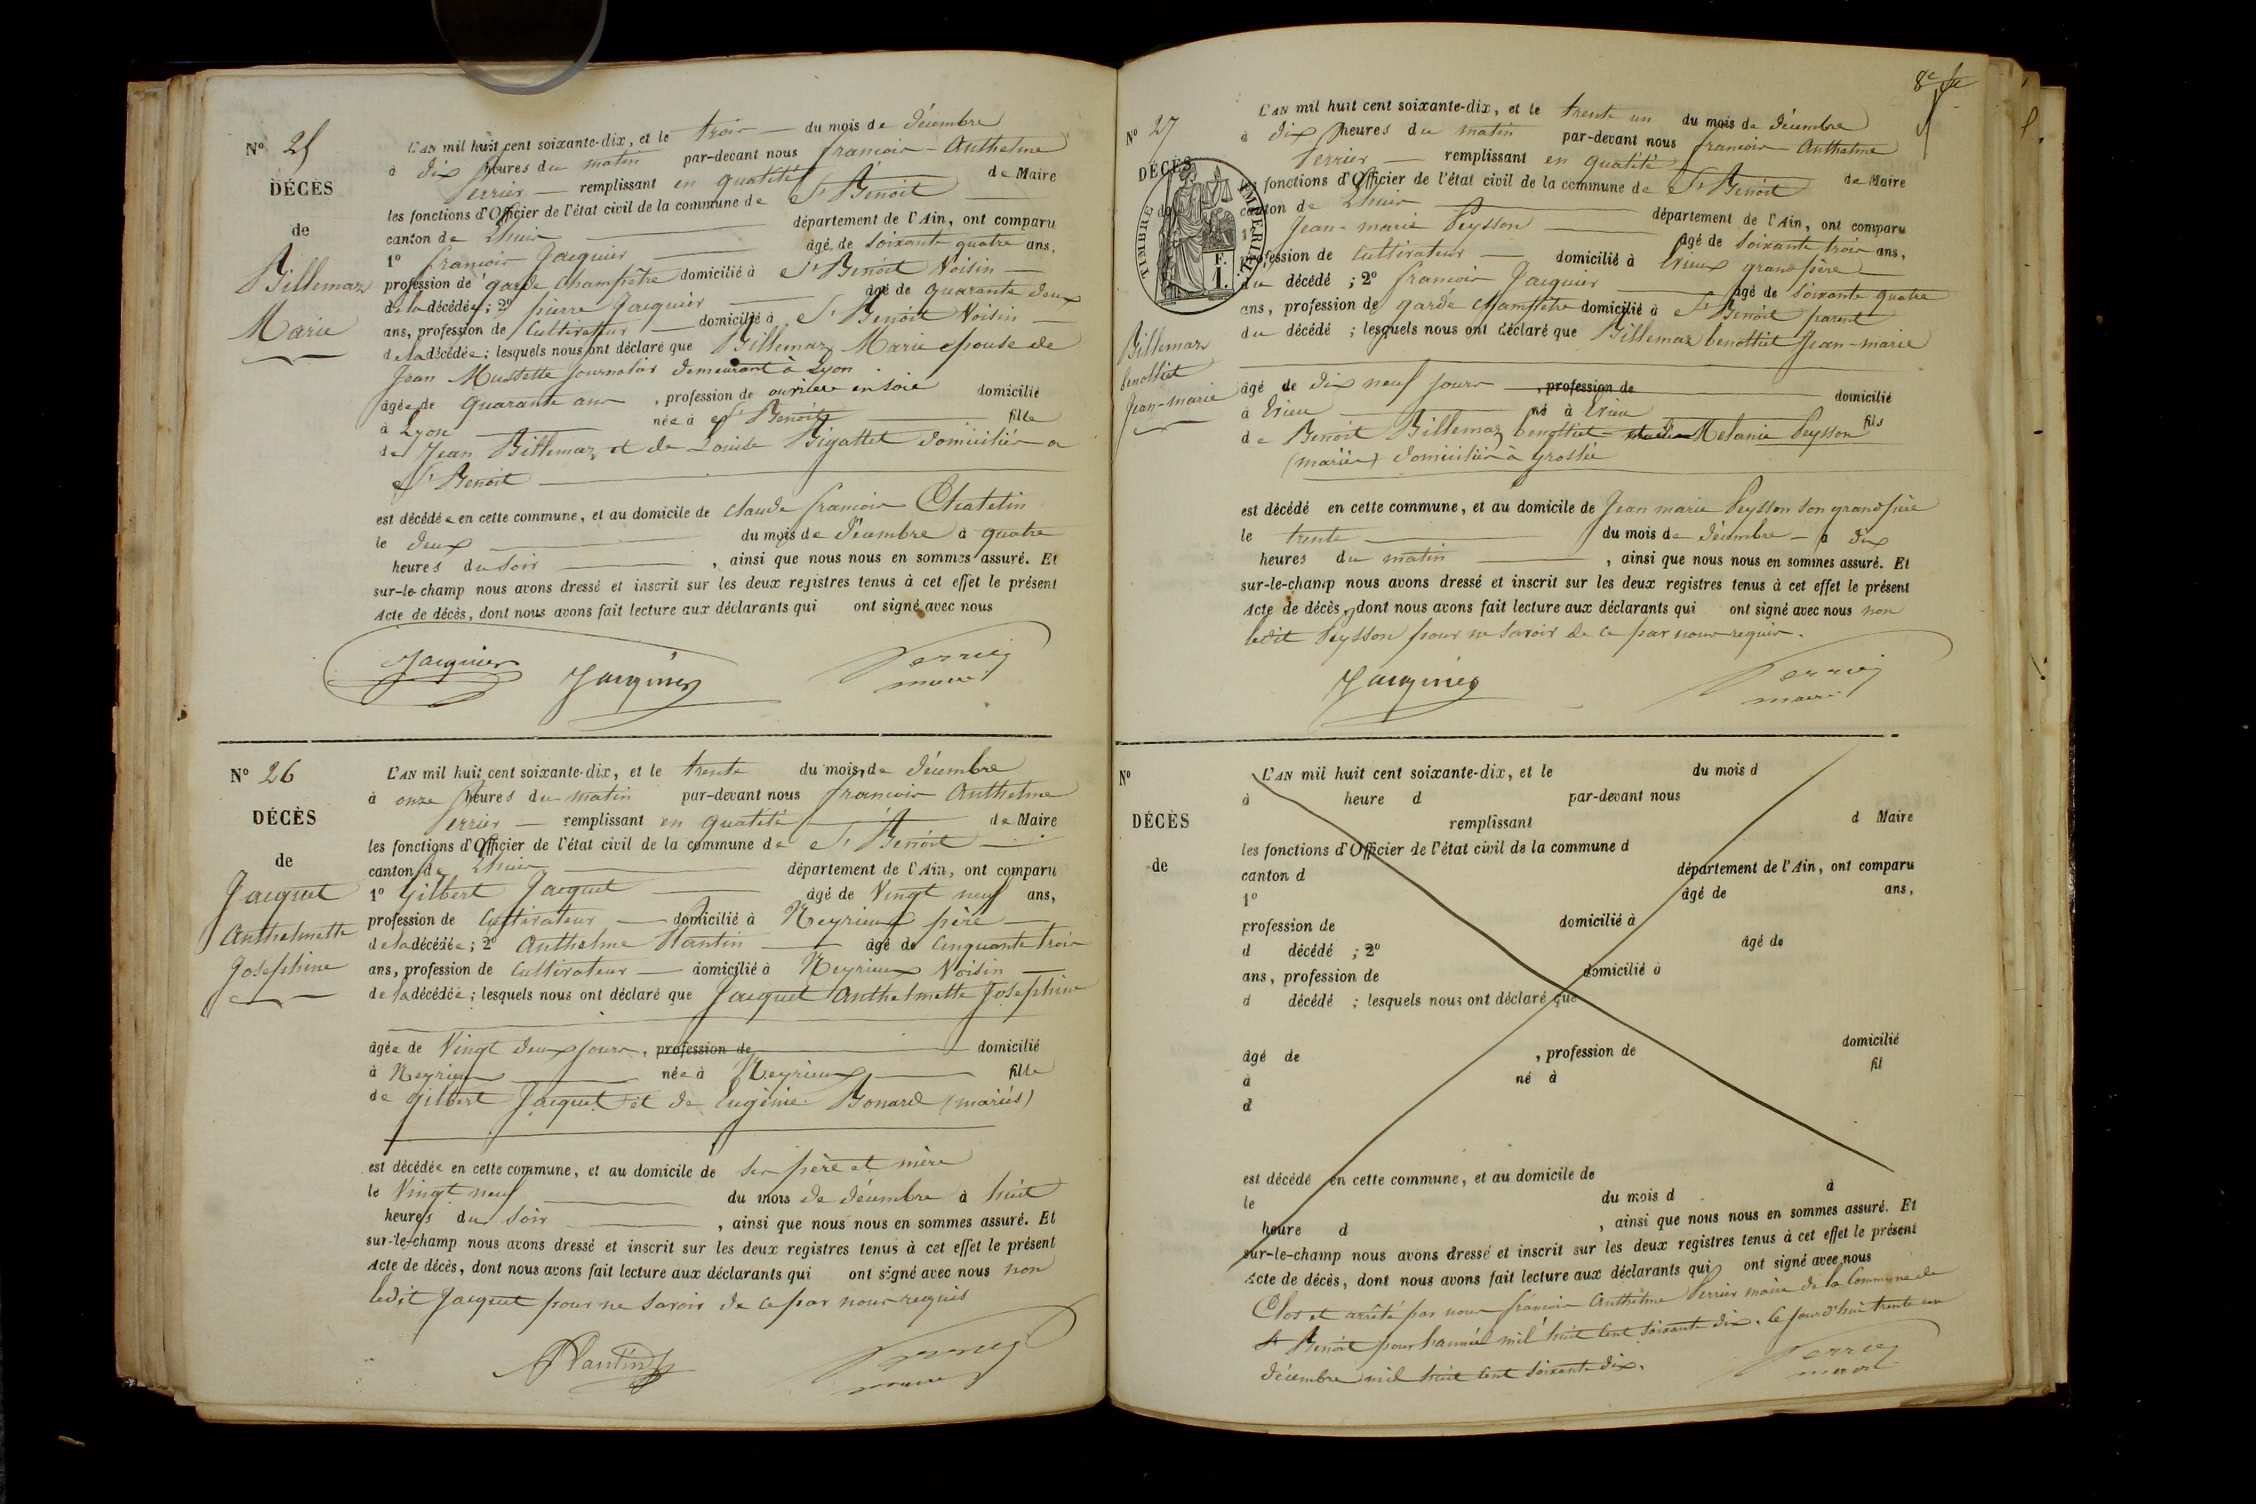 N° 25
DÉCÈS
de
Billemaz
Marie
L'AN mil huit cent soixante-dix, et le trois du mois de décembre
à dix heures du matin par-devant nous françois Anthelme
Perrier remplissant en qualité de Maire
les fonctions d'Officier de l'état civil de la commune de St Benoit
canton de Lhuis département de l'Ain, ont comparu
1° françois Jacquier âgé de soixante quatre ans,
profession de garde champêtre domicilié à St Benoit Voisin
de la décédée; 2° pierre Jacquier âgé de quarante deux
ans, profession de Cultivateur domicilié à St Benoit Voisin
de la décédée; lesquels nous ont déclaré que Billemaz Marie épouse de
Jean Mustette journalier demeurant à Lyon
âgée de quarante ans, profession de ouvrière en soie domicilié
à Lyon née à St Benoit fille
de Jean Billemaz et de Louise Bigattet domiciliés a
St Benoit
est décédée en cette commune, et au domicile de Claude françois Chatelin
le deux du mois de Décembre à quatre
heures du soir, ainsi que nous nous en sommes assuré. Et
sur-le-champ nous avons dressé et inscrit sur les deux registres tenus à cet effet le présent
Acte de décès, dont nous avons fait lecture aux déclarants qui ont signé avec nous
Jacquier Jacquier Perrier
maire
N° 26
DÉCÈS
de
Jacquet
Anthelmette
Josephine
L'AN mil huit cent soixante-dix, et le trente du mois de décembre
à onze heures du matin par-devant nous françois Anthelme
Perrier remplissant en qualité de Maire
les fonctions d'Officier de l'état civil de la commune de St Benoit
canton de Lhuis département de l'Ain, ont comparu
1° Gilbert Jacquet âgé de Vingt neuf ans,
profession de Cultivateur domicilié à Meyrieux père
de la décédée; 2° Anthelme Plantin âgé de Cinquante trois
ans, profession de Cultivateur domicilié à Meyrieux Voisin
de la décédée; lesquels nous ont déclaré que Jacquet Anthelmette Josephine
âgée de Vingt deux jours, profession de domicilié
à Meyrieux née à Meyrieux fille
de Gilbert Jacquet et de Eugénie Bonard (mariés)
est décédée en cette commune, et au domicile de ses père et mère
le Vingt neuf du mois de décembre à huit
heures du soir, ainsi que nous nous en sommes assuré. Et
sur-le-champ nous avons dressé et inscrit sur les deux registres tenus à cet effet le présent
Acte de décès, dont nous avons fait lecture aux déclarants qui ont signé avec nous non
ledit Jacquet pour ne savoir de ce par nous requis
Plantin Perrier
maire
8e ft
N° 27
DÉCÈS
de
TIMBRE IMPERIAL
F.
1.
Billemaz
benottiet
Jean-marie
L'AN mil huit cent soixante-dix, et le trente un du mois de décembre
à dix heures du matin par-devant nous françois Anthelme
Perrier remplissant en qualité de Maire
les fonctions d'Officier de l'état civil de la commune de St Benoit
canton de Lhuis département de l'Ain, ont comparu
1° Jean-marie Peysson âgé de soixante trois ans,
profession de Cultivateur domicilié à Evieux grand père
du décédé; 2° françois Jacquier âgé de soixante quatre
ans, profession de garde champêtre domicilié à St Benoit parent
du décédé; lesquels nous ont déclaré que Billemaz benottiet Jean-marie
âgé de dix neuf jours, profession de domicilié
à Evieu né à Evieu fils
de Benoit Billemaz benottiet Melanie Peysson
(mariés) domiciliés à groslée
est décédé en cette commune, et au domicile de Jean marie Peysson son grand père
le trente du mois de décembre à dix
heures du matin, ainsi que nous nous en sommes assuré. Et
sur-le-champ nous avons dressé et inscrit sur les deux registres tenus à cet effet le présent
Acte de décès, dont nous avons fait lecture aux déclarants qui ont signé avec nous non
ledit Peysson pour ne savoir de ce par nous requis.
Jacquier Perrier
maire
N°
DÉCÈS
de
L'AN mil huit cent soixante-dix, et le du mois d
à heure d par-devant nous
remplissant d Maire
les fonctions d'Officier de l'état civil de la commune d
canton d département de l'Ain, ont comparu
1° âgé de ans,
profession de domicilié à
d décédé ; 2° âgé de
ans, profession de domicilié à
d décédé ; lesquels nous ont déclaré que
âgé de , profession de domicilié
à né à fil
d
est décédé en cette commune, et au domicile de
le du mois d à
heure d , ainsi que nous nous en sommes assuré. Et
sur-le-champ nous avons dressé et inscrit sur les deux registres tenus à cet effet le présent
Acte de décès, dont nous avons fait lecture aux déclarants qui ont signé avec nous
Clos et arrêté par nous françois Anthelme Perrier maire de la Commune de
St Benoit pour l'année mil huit cent soixante dix. Ce jourd'hui trente un
décembre mil huit cent soixante dix.
Perrier
maire